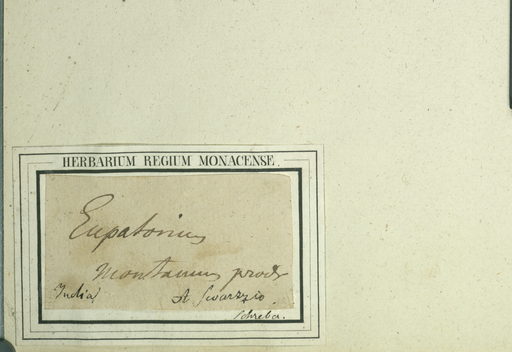 HERBARIUM REGIUM MONACENSE.
Eupatorium
montanum prodr
India
A Swarzzio.
Schreber.